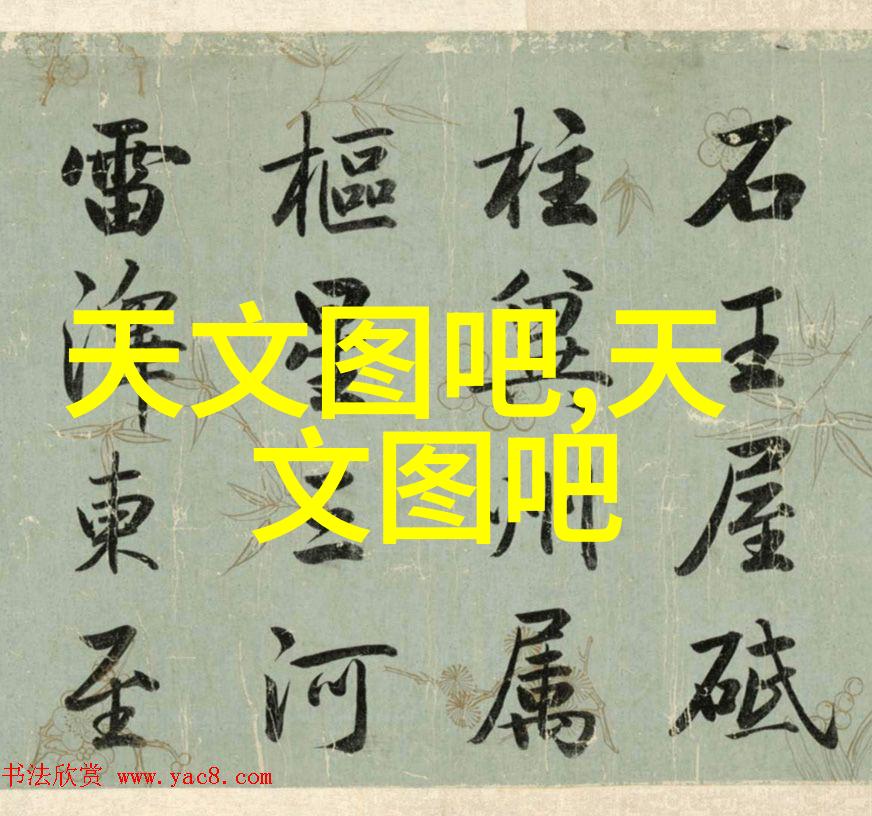 石王屋砥
柱冀州属
樞星三河
雷澤東至
天文图吧,天
文图吧
书法欣赏 www.yac8.com